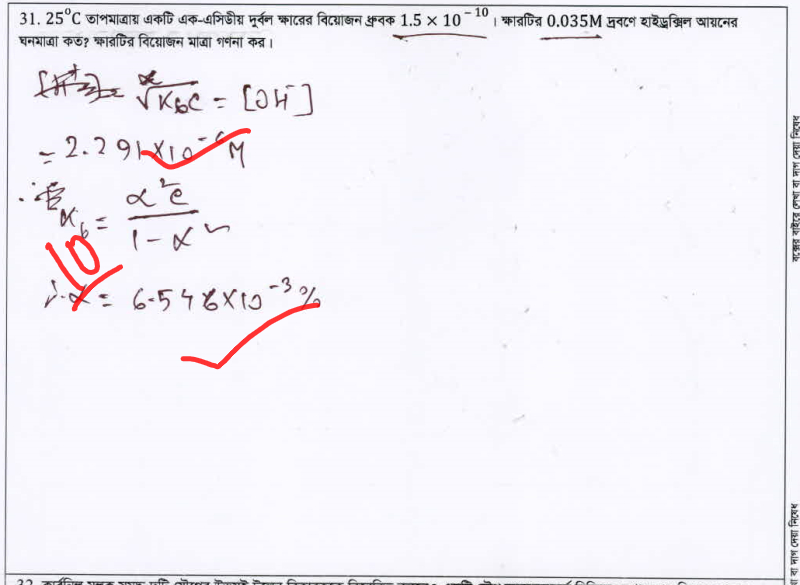 31. 25°C তাপমাত্রায় একটি এক-এসিডীয় দুর্বল ক্ষারের বিয়োজন ধ্রুবক 1.5 × 10⁻¹⁰ । ক্ষারটির 0.035M দ্রবণে হাইড্রক্সিল আয়নের
ঘনমাত্রা কত? ক্ষারটির বিয়োজন মাত্রা গণনা কর।
√KbC = [OH⁻]
= 2.291×10⁻⁶ M
Kb = α²c / 1-α
10
∴ α = 6.546×10⁻³ %
বক্সের বাইরে লেখা বা দাগ দেয়া নিষেধ
বা দাগ দেয়া নিষেধ